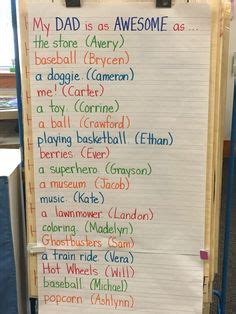 My DAD is as AWESOME as ...
the store. (Avery)
baseball. (Brycen)
a doggie. (Cameron)
me! (Carter)
a toy. (Corrine)
a ball. (Crawford)
playing basketball. (Ethan)
berries. (Ever)
a superhero. (Grayson)
a museum. (Jacob)
music. (Kate)
a lawnmower. (Landon)
coloring. (Madelyn)
Ghostbusters (Sam)
a train ride. (Vera)
Hot Wheels (Will)
baseball. (Michael)
popcorn (Ashlynn)